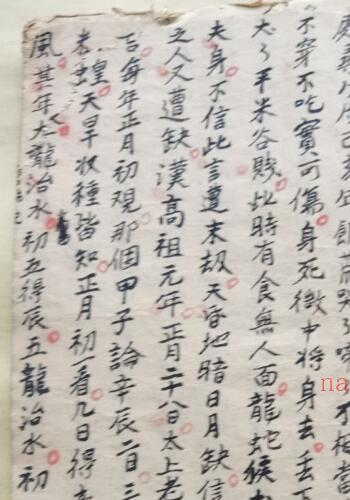 不穿不吃實可傷身死後中將身去丢下
大々平米谷賤此時有食無人面龍蛇候
夫身不信此言遭末劫天昏地暗日月缺信
之人又遭缺漢高祖元年正月二十八日太上老
言每年正月初現那個甲子論辛辰二日三
蝗天旱收種皆知正月初一看几日得
風其年六龍治水初五得辰五龍治水初
na